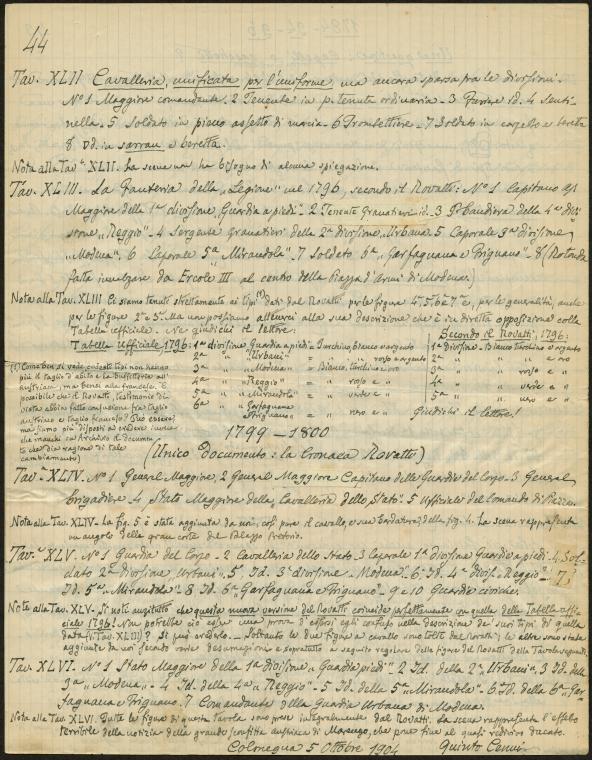 44
Tav. XLII Cavalleria, unificata per l'uniforme, ma ancora sparsa fra le divisioni.
Nº1 Maggiore comandante. 2 Tenente in p. tenuta ordinaria - 3 Furiere id. 4 Senti-
nella - 5 Soldato in pieno assetto di marcia - 6 Trombettiere - 7 Soldato in e beretta
8 Id. in sarrau e beretta.
Nota alla Tavª XLII. La scena non ha bisogno di alcuna spiegazione.
Tav. XLIII. La Fanteria della "Legione" nel 1796, secondo il Rovatti: Nº1 Capitano
Maggiore della 1ª divisione "Guardia a piedi" - 2 Tenente Granatieri id. - 3 P. Bandiera della 4ª divi-
sione "Reggio" - 4 Sergente granatieri della 2ª divisione "Urbana". 5 Caporale 3ª divisione
"Modena". 6 Caporale 5ª "Mirandola" - 7 Soldato 6ª "Garfagnana e Frignano" - 8 (Rotonda
fatta innalzare da Ercole III al centro della Piazza d'Armi di Modena.)
Nota alla Tav. XLIII Ci siamo tenuti strettamente ai tipi (1) dati dal Rovatti per le figure 4, 5, 6 e 7 e, per le generalità, anche
per le figure 2ª e 3ª. Ma non possiamo attenerci alla sua descrizione che è in diretta opposizione colla
Tabella ufficiale. Ne giudichi il lettore:
Tabella ufficiale, 1796: 1ª divisione Guardia a piedi = Turchino, bianco e argento
2ª " "Urbana" = " rosso e argento
3ª " "Modena" = Bianco, turchino e oro
4ª " "Reggio" = " rosso e "
5ª " "Mirandola" = " verde e "
6ª " Garfagnana e Frignano = " nero e "
Secondo il Rovatti, 1796:
1ª divisione - Bianco turchino e argento
2ª " " " e oro
3ª " " rosso e "
4ª " " verde e "
5ª " " nero e "
Giudichi il lettore!
(1) Come ben si vede, questi tipi non hanno
più il taglio d'abito e la buffetteria all'
austriaca, ma bensì alla francese. È
possibile che il Rovatti, testimonio di
vista abbia fatto confusione fra taglio
austriaco e taglio francese? Può essere,
ma siamo più disposti a credere invece
che manchi in Archivio il documen-
to che dia ragione di tale
cambiamento)
1799 - 1800
(Unico documento: la Cronaca Rovatti)
Tavª XLIV. Nº1 General Maggiore, 2 General Maggiore Capitano delle Guardie del Corpo - 3 General
brigadiere - 4 Stato Maggiore della "Cavalleria dello Stato". 5 Ufficiale del Comando di Piazza.
Nota alla Tav. XLIV - La fig. 5 è stata aggiunta da noi; così pure il cavallo, e sua bardatura, della fig. 4. La scena rappresenta
un angolo della gran corte del Palazzo
Tav.ª XLV. Nº1 Guardia del Corpo - 2 Cavalleria dello Stato - 3 Caporale 1ª divisione Guardia a piedi - 4 Sol-
dato 2ª divisione "Urbana". 5 Id. 3ª divisione - Modena - 6 Id. 4ª divis. "Reggio" - 7
Id. 5ª "Mirandola" - 8 Id. 6ª Garfagnana e Frignano - 9 e 10 Guardie civiche.
Nota alla Tav. XLV. Si noti anzitutto che questa nuova versione del Rovatti coincide perfettamente con quella della Tabella uffi-
ciale 1796! Non potrebbe ciò esser una prova d'essersi egli confuso nella descrizione de' suoi tipi di quella
data (V. Tav. XLIII)? Si può crederlo. - Soltanto le due figure a cavallo sono tolte dal Rovatti; le altre sono state
aggiunte da noi secondo varie desumazioni e soprattutto a seguito regolare delle figure del Rovatti della Tavola seguente.
Tav. XLVI. Nº1 Stato Maggiore della 1ª Divisione "Guardia a piedi" 2 Id. della 2ª "Urbana", 3 Id. della
3ª "Modena" - 4 Id. della 4ª "Reggio" - 5 Id. della 5ª "Mirandola" - 6 Id. della 6ª "Gar-
fagnana e Frignano. 7 Comandante della Guardia Urbana di Modena.
Nota alla Tav. XLVI. Tutte le figure di questa tavola sono prese integralmente dal Rovatti. La scena rappresenta l'effetto
terribile della notizia della grande sconfitta austriaca di Marengo, che pone fine al quasi redivivo ducato.
Colmegna 5 Ottobre 1904 Quinto Cenni